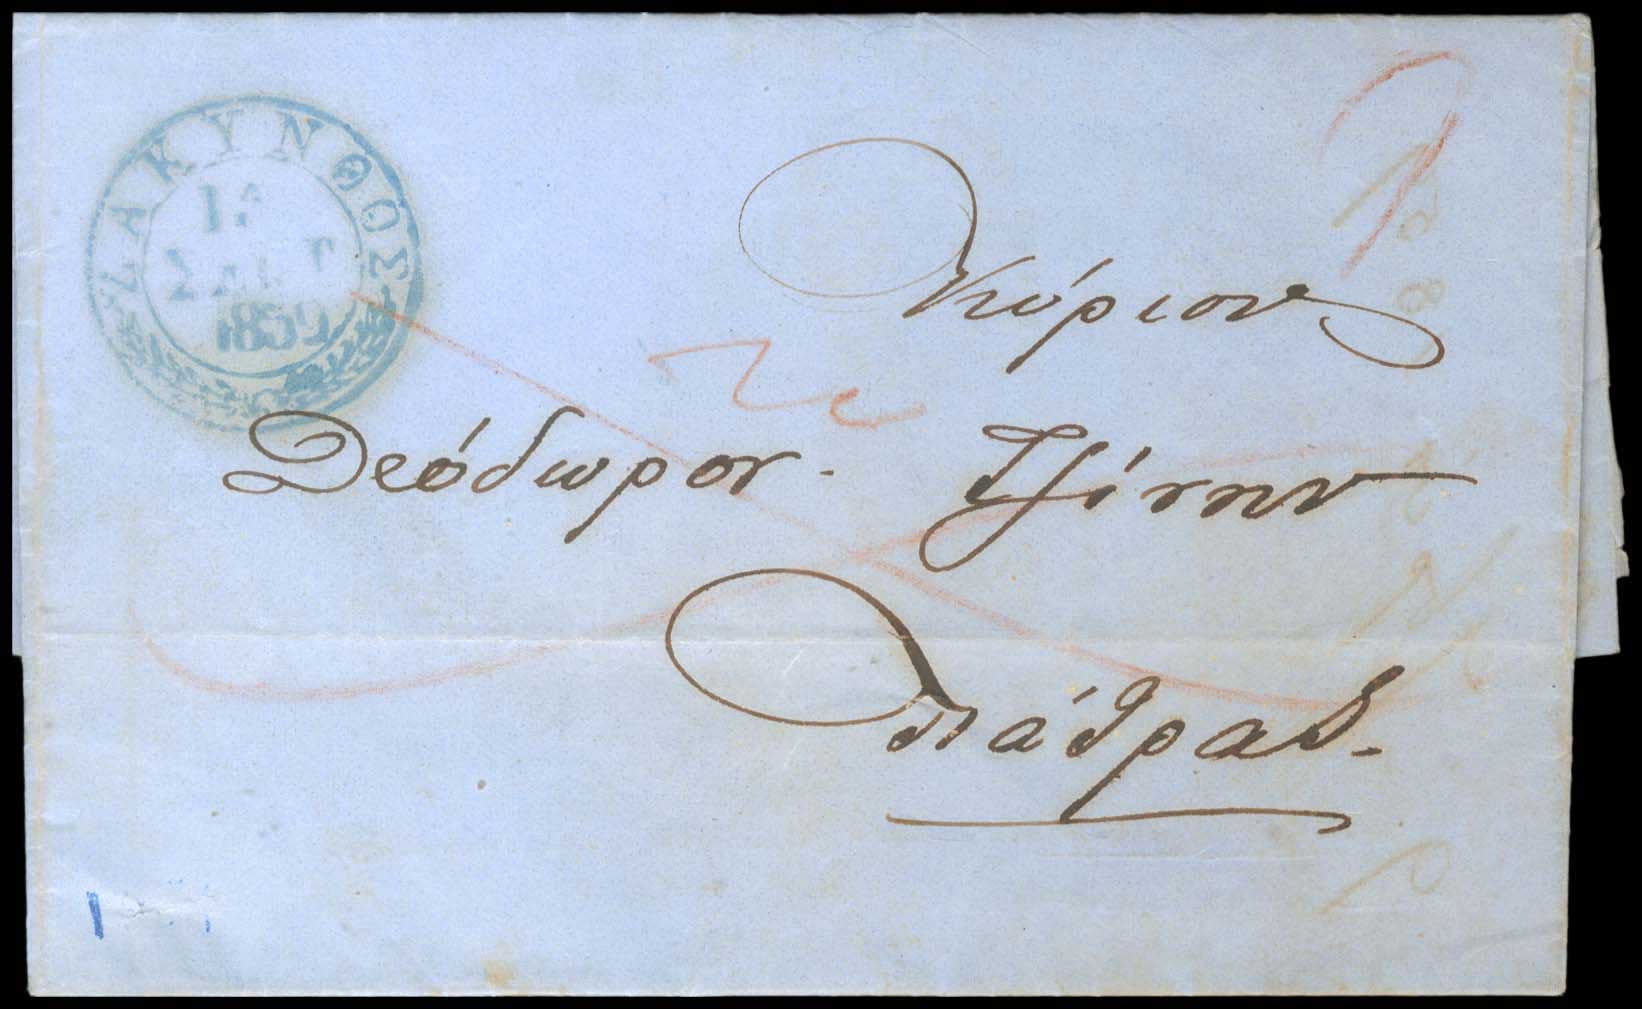 ΖΑΚΥΝΘΟΣ
1859
Κύριον
Θεόδωρον Τζίνην
Πάτρας